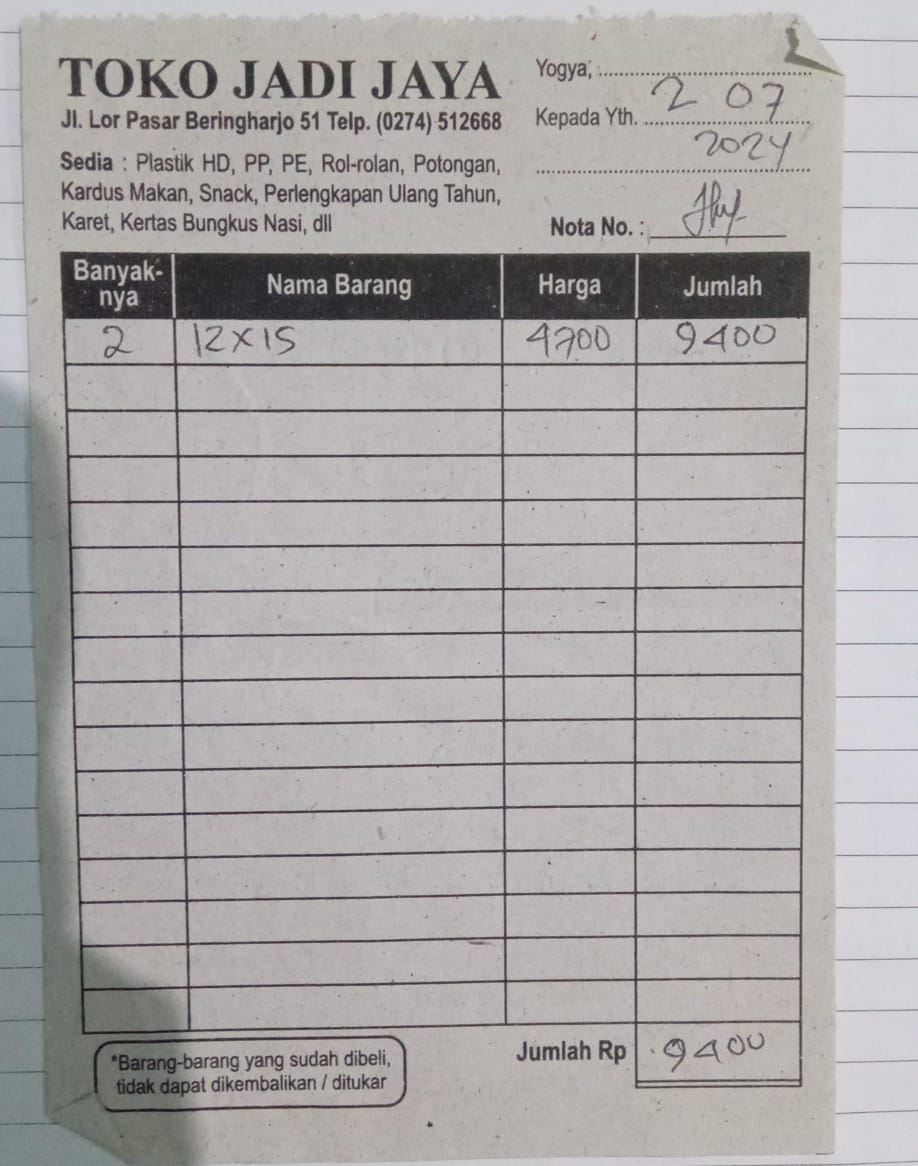 TOKO JADI JAYA
Jl. Lor Pasar Beringharjo 51 Telp. (0274) 512668
Sedia : Plastik HD, PP, PE, Rol-rolan, Potongan,
Kardus Makan, Snack, Perlengkapan Ulang Tahun,
Karet, Kertas Bungkus Nasi, dll
Yogya,
2 07
Kepada Yth.
2024
Nota No. :
Banyak-
nya
Nama Barang
Harga
Jumlah
2 12X15 4700 9400
Jumlah Rp 9400
*Barang-barang yang sudah dibeli,
tidak dapat dikembalikan / ditukar